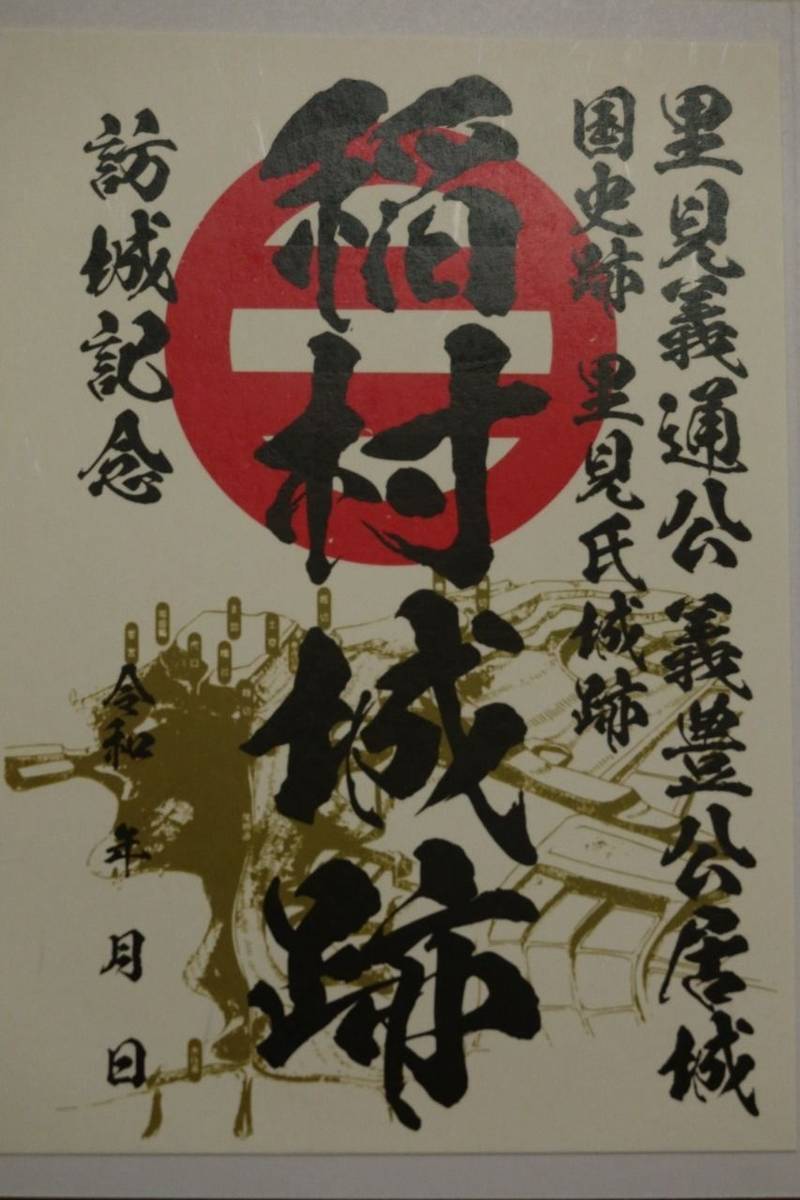 里見義通公義豊公居城
国史跡 里見氏城跡
稲村城跡
訪城記念
令和 年 月 日